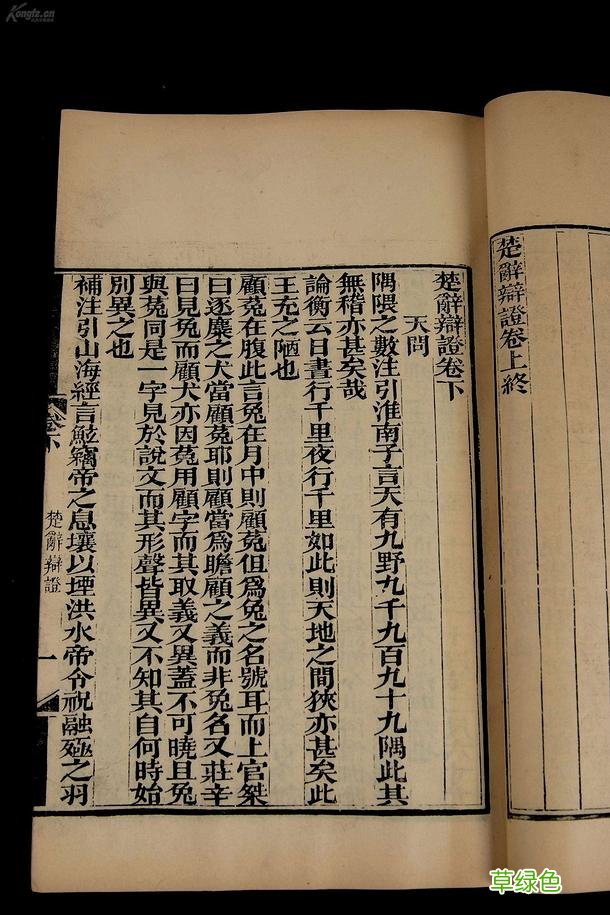 Kongfz.cn
楚辭辯證卷上終
楚辭辯證卷下
天問
隅隈之數注引淮南子言天有九野九千九百九十九隅此其
無稽亦甚矣哉
論衡云日晝行千里夜行千里如此則天地之間狹亦甚矣此
王充之陋也
顧菟在腹此言兔在月中則顧菟但為兔之名號耳而上官桀
曰逐麋之犬當顧菟耶則顧當為瞻顧之義而非兔名又莊辛
曰見兔而顧犬亦因菟用顧字而其取義又異蓋不可曉且兔
與菟同是一字見於說文而其形聲皆異又不知其自何時始
別異之也
補注引山海經言鮌竊帝之息壤以堙洪水帝令祝融殛之羽
卷下
楚辭辯證
一
草绿色